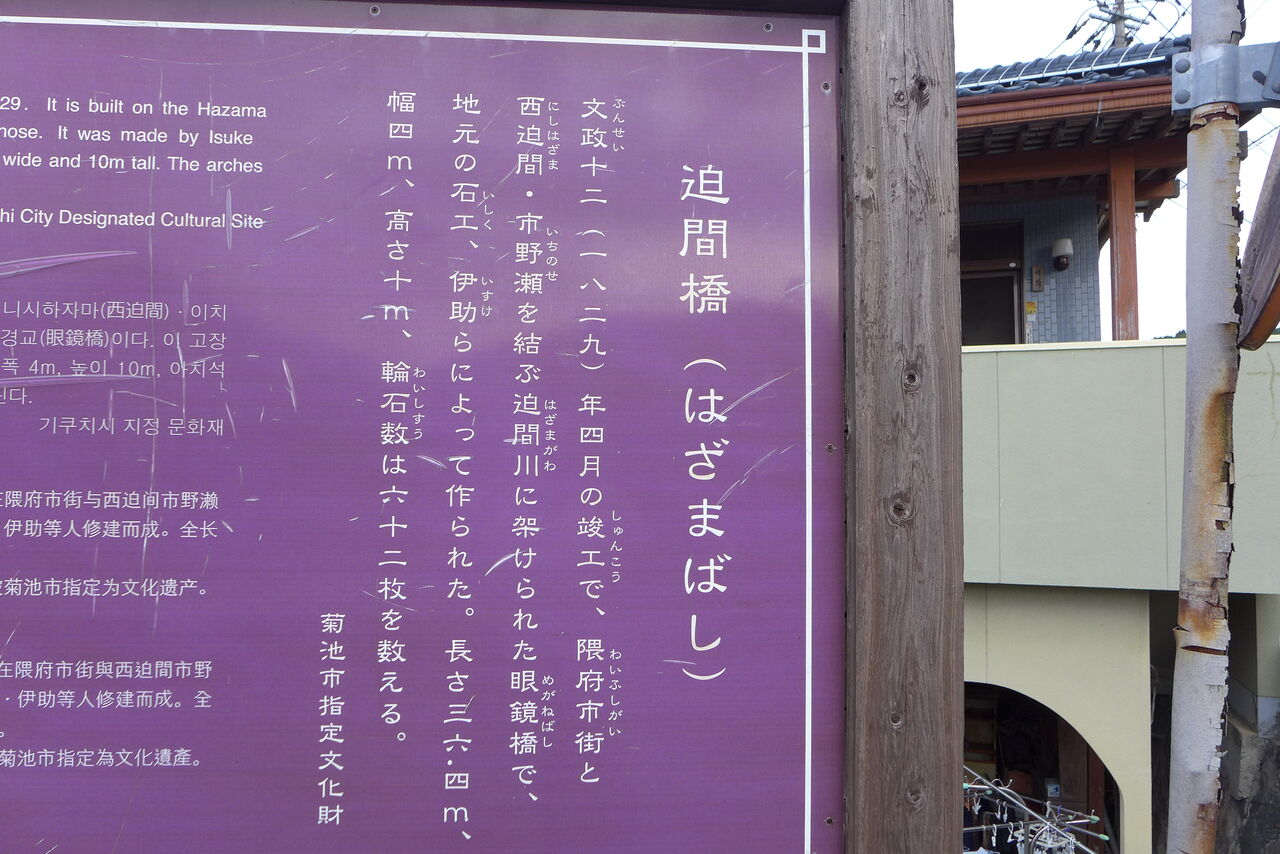 迫間橋（はざまばし）
文政十二（一八二九）年四月の竣工で、隈府市街と
西迫間・市野瀬を結ぶ迫間川に架けられた眼鏡橋で、
地元の石工、伊助らによって作られた。長さ三六・四ｍ、
幅四ｍ、高さ十ｍ、輪石数は六十二枚を数える。
菊池市指定文化財
ぶんせい
しゅんこう
わいふしがい
にしはざま
いちのせ
はざまがわ
めがねばし
いしく
いすけ
わいしすう
29. It is built on the Hazama
nose. It was made by Isuke
wide and 10m tall. The arches
hi City Designated Cultural Site
니시하자마(西迫間)·이치
경교(眼鏡橋)이다. 이 고장
폭 4m, 높이 10m, 아치석
기쿠치시 지정 문화재
在隈府市街与西迫间市野濑
伊助等人修建而成。全长
菊池市指定为文化遗产。
在隈府市街與西迫間市野
·伊助等人修建而成。全
菊池市指定為文化遺產。